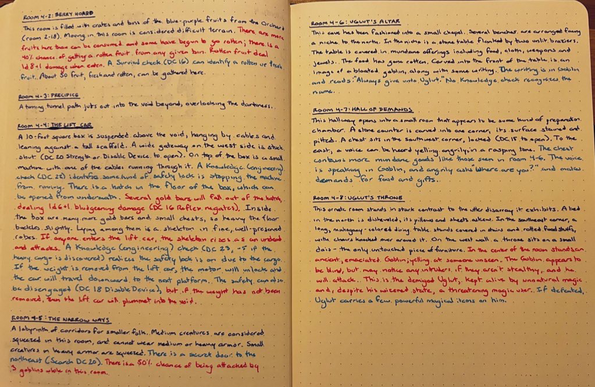 ROOM 4-2: BERRY HORDE
This room is filled with crates and bins of the blue-purple fruits from the Orchard
(room 2-18). Moving in this room is considered difficult terrain. There are more
fruits here than can be consumed and some have begun to go rotten; there is a
40% chance of getting a rotten fruit from any given bin. Rotten fruit deal
1d8+1 damage when eaten. A Survival check (DC 16) can identify a rotten or fresh
fruit. About 50 fruit, fresh and rotten, can be gathered here.
ROOM 4-3: PRECIPICE
A timing tunnel path juts out into the void beyond, overlooking the darkness.
ROOM 4-4: THE LIFT CAR
A 10-foot square box is suspended above the void, hanging by cables and
leaning against a tall scaffold. A wide gateway on the west side is stuck
shut (DC 20 Strength or Disable Device to open). On top of the box is a small
machine with one of the cables running through it. A Knowledge (engineering)
check (DC 25) identifies some kind of safety lock is stopping the machine
from running. There is a hatch in the floor of the box, which can
be opened from underneath. Several gold bars will fall out of the hatch,
dealing 1d6+1 bludgeoning damage (DC 16 Reflex negates). Inside
the box are many more gold bars and small chests, so heavy the floor
buckles slightly. Lying among them is a skeleton in fine, well-preserved
robes. If anyone enters the lift car, the skeleton rises as an undead
and attacks. A Knowledge (engineering) check (DC 29, -5 if the
heavy cargo is discovered) realizes the safety lock is on due to the cargo.
If the weight is removed from the lift car, the motor will unlock and
the car will travel downward to the next platform. The safety can also
be disengaged (DC 18 Disable Device), but if the weight has not been
removed, then the lift car will plummet into the void.
ROOM 4-5: THE NARROW WAYS
A labyrinth of corridors for smaller folk. Medium creatures are considered
squeezed in this room, and cannot wear medium or heavy armor. Small
creatures in heavy armor are squeezed. There is a secret door to the
northeast (Search DC 20). There is a 50% chance of being attacked by
3 goblins while in this room.
ROOM 4-6: UGLUT'S ALTAR
This cave has been fashioned into a small chapel. Several benches are arranged facing
a niche to the north. In the niche is a stone table flanked by two unlit braziers.
The table is covered in mundane offerings including food, cloth, weapons and
jewels. The food has gone rotten. Carved into the front of the table is an
image of a bloated goblin, along with some writing. The writing is in Goblin
and reads: "Always give into Uglut." No Knowledge check recognizes the
name.
ROOM 4-7: HALL OF DEMANDS
This hallway opens into a small room that appears to be some kind of preparation
chamber. A stone counter is carved into one corner, its surface stained and
pitted. A chest sits in the southwest corner, locked (DC 15 to open). To the
east, a voice can be heard yelling angrily in a rasping tone. The chest
contains more mundane goods, like those seen in room 4-6. The voice
is speaking in Goblin, and angrily asks "Where are you?" and makes
demands for food and gifts.
ROOM 4-8: UGLUT'S THRONE
This ornate room stands in stark contrast to the utter disarray it exhibits. A bed
in the north is disheveled, its pillows and sheets askew. In the southeast corner, a
long, mahogany-colored dining table stands covered in stains and rotted foodstuffs,
with chairs knocked over around it. On the west wall is a throne sits on a small
dais - the only untouched piece of furniture. In the center of the room stands an
ancient, emaciated Goblin, yelling at someone unseen. The Goblin appears to
be blind, but may notice any intruders if they aren't stealthy, and he
will attack. This is the deranged Uglut, kept alive by unnatural magic
and, despite his wizened state, a threatening magic user. If defeated,
Uglut carries a few powerful magical items on him.